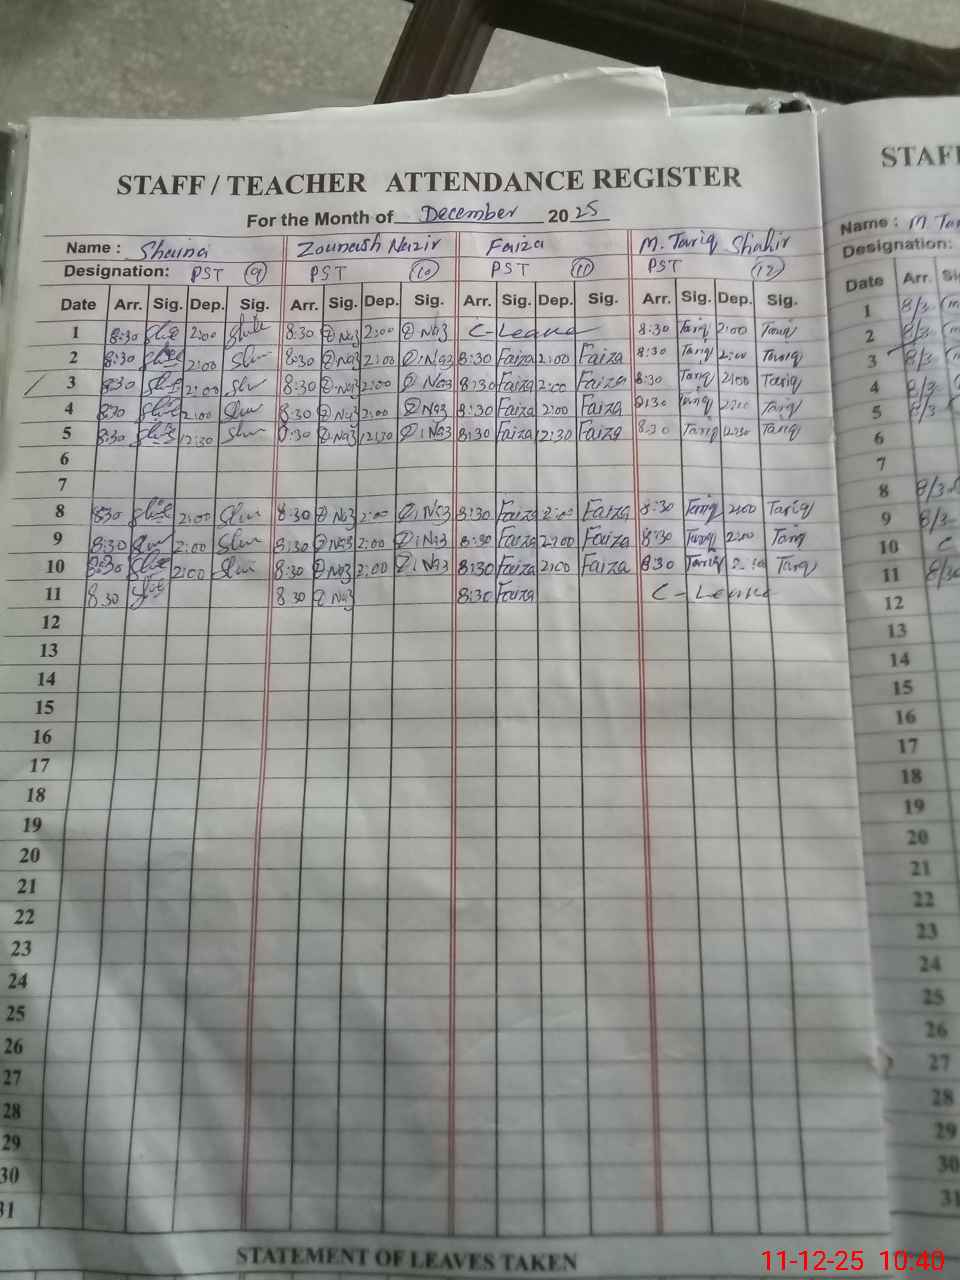 STAFF / TEACHER ATTENDANCE REGISTER
For the Month of December 2025
Name : Shaina Zounash Nazir Faiza M. Tariq Shakir
Designation: PST (9) PST (10) PST (11) PST (12)
Date Arr. Sig. Dep. Sig. Arr. Sig. Dep. Sig. Arr. Sig. Dep. Sig. Arr. Sig. Dep. Sig.
1 8:30 2:00 8:30 Naz 2:00 Naz C-Leave 8:30 Tariq 2:00 Tariq
2 8:30 2:00 8:30 Naz 2:00 Naz 8:30 Faiza 2:00 Faiza 8:30 Tariq 2:00 Tariq
3 8:30 2:00 8:30 Naz 2:00 Naz 8:30 Faiza 2:00 Faiza 8:30 Tariq 2:00 Tariq
4 8:30 2:00 8:30 Naz 2:00 Naz 8:30 Faiza 2:00 Faiza 8:30 Tariq 2:00 Tariq
5 8:30 12:30 8:30 Naz 12:30 Naz 8:30 Faiza 12:30 Faiza 8:30 Tariq 12:30 Tariq
6
7
8 8:30 2:00 8:30 Naz 2:00 Naz 8:30 Faiza 2:00 Faiza 8:30 Tariq 2:00 Tariq
9 8:30 2:00 8:30 Naz 2:00 Naz 8:30 Faiza 2:00 Faiza 8:30 Tariq 2:00 Tariq
10 8:30 2:00 8:30 Naz 2:00 Naz 8:30 Faiza 2:00 Faiza 8:30 Tariq 2:00 Tariq
11 8:30 8:30 Naz 8:30 Faiza C-Leave
12
13
14
15
16
17
18
19
20
21
22
23
24
25
26
27
28
29
30
31
STATEMENT OF LEAVES TAKEN
STAFF
Name : M. Tar
Designation:
Date Arr. Si
1 8/3
2 8/3
3 8/3
4 8/3
5 8/3
6
7
8 8/3
9 8/3
10 C
11 8/30
12
13
14
15
16
17
18
19
20
21
22
23
24
25
26
27
28
29
30
31
11-12-25 10:40